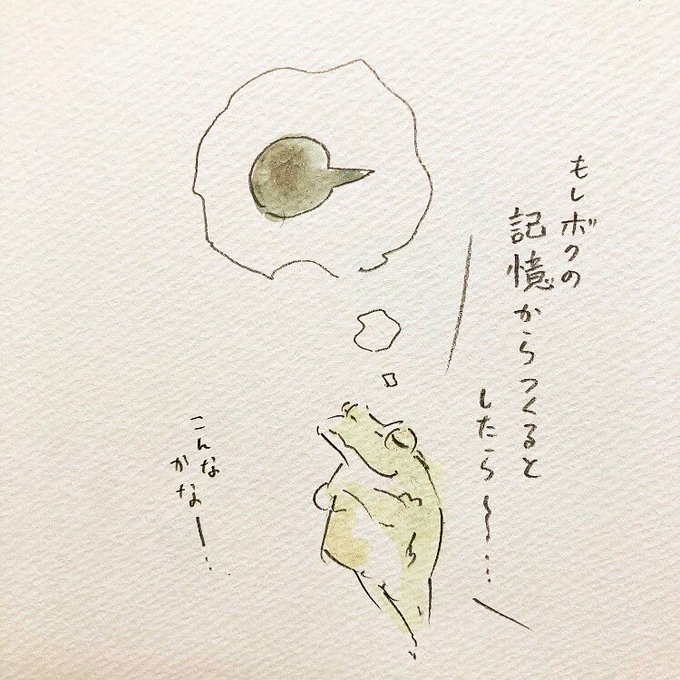 もしボクの
記憶からつくると
したら〜〜…
こんな
かなー…